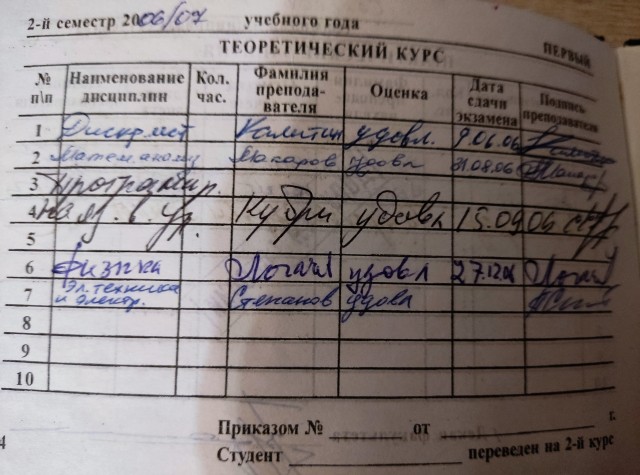 2-й семестр 2006/07 учебного года
ТЕОРЕТИЧЕСКИЙ КУРС ПЕРВЫЙ
№ п\п Наименование дисциплин Кол. час. Фамилия препода-вателя Оценка Дата сдачи экзамена Подпись преподавателя
1 Дискр. мат Калитин удовл. 9.06.06
2 Матем. анализ Макаров удовл 31.08.06
3 Программир.
4 на яз. в. ур. Кубри удовл 15.09.06
5
6 физика Логачёв удовл 27.12.06
7 Эл. техника и электр. Степанов удовл
8
9
10
Приказом № от г.
Студент переведен на 2-й курс
4